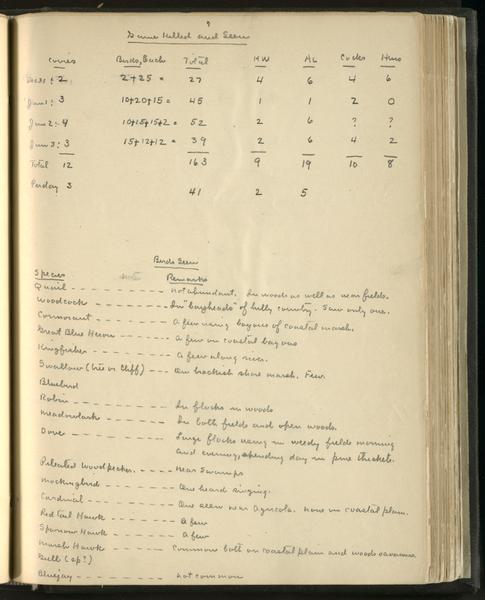 9
Game Killed and Seen
Covies Birds, Each Total HW AL Cocks Hens
Dec 31: 2 2+25 = 27 4 6 4 6
Jan 1: 3 10+20+15 = 45 1 1 2 0
Jan 2: 4 10+15+15+2 = 52 2 6 ? ?
Jan 3: 3 15+12+12 = 39 2 6 4 2
Total 12 163 9 19 10 8
Per day 3 41 2 5
Birds Seen
Species Remarks
Quail - not abundant. In woods as well as near fields.
Woodcock - In "bayheads" of hilly country. Saw only one.
Cormorant - A few using bayous of coastal marsh.
Great Blue Heron - A few on coastal bayous
Kingfisher - A few along river.
Swallow (tree or cliff) - On brackish shore marsh. Few.
Bluebird
Robin - In flocks in woods
Meadowlark - In both fields and open woods.
Dove - Large flocks using in weedy fields morning
and evening, spending day in pine thickets.
Pileated Woodpecker - near swamps
Mockingbird - One heard singing.
Cardinal - One seen near Agricola. None on coastal plain.
Red tail Hawk - A few
Sparrow Hawk - A few
Marsh Hawk - Common both on coastal plain and woods savannas.
Gull (sp?)
Bluejay - not common